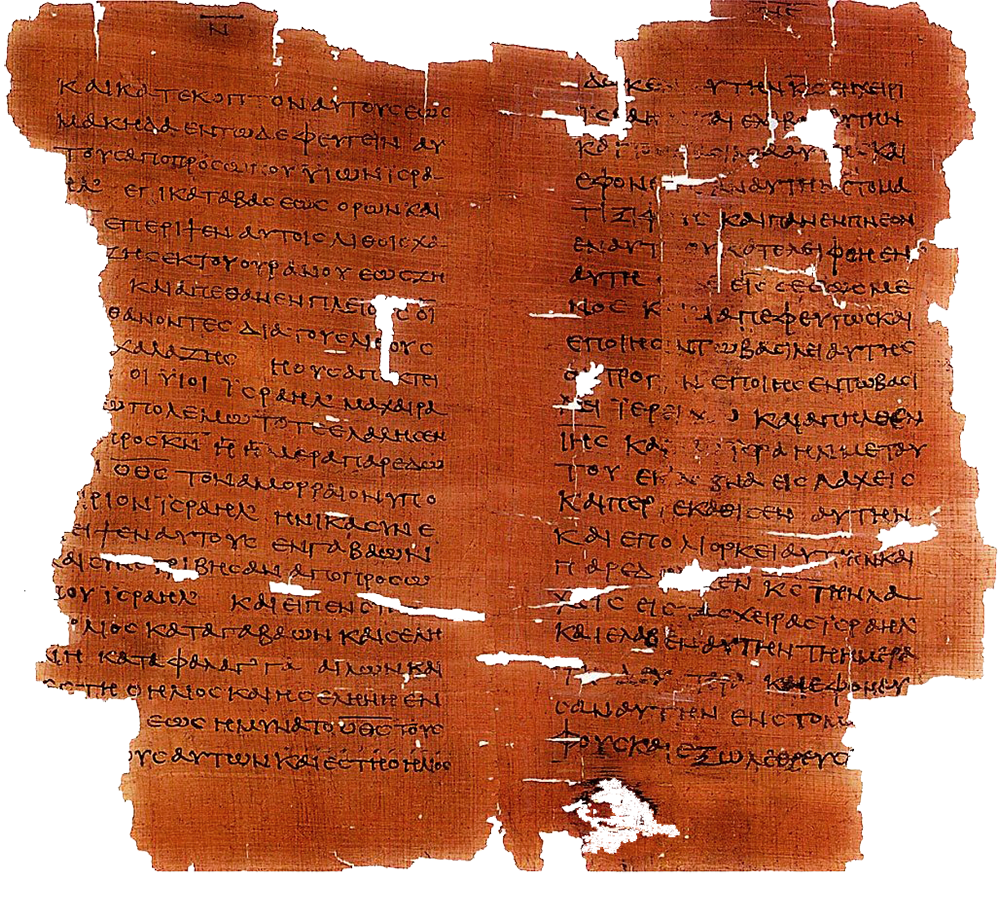 Ν
ΚΑΙ ΚΑΤΕΚΟΠΤΟΝ ΑΥΤΟΥΣ ΕΩΣ
ΜΑΚΗΔΑ ΕΝ ΤΩ ΔΕ ΦΕΥΓΕΙΝ ΑΥ
ΤΟΥΣ ΑΠΟ ΠΡΟΣΩΠΟΥ ΥΙΩΝ ΙΣΡΑ
ΗΛ ΕΠΙ ΚΑΤΑΒΑΣΕΩΣ ΟΡΩΝ ΚΑΙ
ΕΠΕΡΙΨΕΝ ΑΥΤΟΙΣ ΛΙΘΟΙΣ ΧΑ
ΖΗΣ ΕΚ ΤΟΥ ΟΥΡΑΝΟΥ ΕΩΣ ΖΗ
ΚΑΙ ΑΠΕΘΑΝΕΝ ΠΛΕΙΟΥΣ ΟΙ
ΘΑΝΟΝΤΕΣ ΔΙΑ ΤΟΥΣ ΛΙΘΟΥΣ
ΧΑΛΑΖΗΣ Η ΟΥΣ ΑΠΕΚΤΕΙ
ΟΙ ΥΙΟΙ ΙΣΡΑΗΛ ΜΑΧΑΙΡΑ
ΠΟΛΕΜΩ ΤΟΤΕ ΕΛΑΛΗΣΕΝ
ΠΡΟΣ ΚΝ Η ΗΜΕΡΑ ΠΑΡΕΔΩ
Ο ΘΣ ΤΟΝ ΑΜΟΡΡΑΙΟΝ ΥΠΟ
ΙΡΙΟΝ ΙΣΡΑΗΛ ΗΝΙΚΑ ΣΥΝΕ
ΕΙΨΕΝ ΑΥΤΟΥΣ ΕΝ ΓΑΒΑΩΝ
ΚΑΙ ΣΥΝΕΤΡΙΒΗΣΑΝ ΑΠΟ ΠΡΟΣΩ
ΠΟΥ ΙΣΡΑΗΛ ΚΑΙ ΕΙΠΕΝ
ΗΛΙΟΣ ΚΑΤΑ ΓΑΒΑΩΝ ΚΑΙ ΣΕΛΗ
ΝΗ ΚΑΤΑ ΦΑΛΑΓΓΑ ΑΙΛΩΝ ΚΑΙ
ΕΣΤΗ Ο ΗΛΙΟΣ ΚΑΙ Η ΣΕΛΗΝΗ ΕΝ
ΕΩΣ ΗΜΥΝΑΤΟ Ο ΘΣ ΤΟΥΣ
ΟΥΣ ΑΥΤΩΝ ΚΑΙ ΕΣΤΗ Ο ΗΛΙΟΣ
ΝΕ
ΔΩΚΕΝ ΑΥΤΗΝ ΚΣ ΕΝ ΧΕΙΡΙ
ΙΣΡΑΗΛ ΚΑΙ ΕΛΑΒΟΝ ΑΥΤΗΝ
ΚΑΙ ΤΟΝ ΒΑΣΙΛΕΑ ΑΥΤΗΣ ΚΑΙ
ΕΦΟΝΕΥΣΑΝ ΑΥΤΗΝ ΣΤΟΜΑ
ΤΙ ΞΙΦΟΥΣ ΚΑΙ ΠΑΝ ΕΝΠΝΕΟΝ
ΕΝ ΑΥΤΗ ΟΥ ΚΑΤΕΛΕΙΦΘΗ ΕΝ
ΑΥΤΗ ΕΙΣ ΣΕΣΩΣΜΕ
ΝΟΣ ΚΑΙ ΔΙΑΠΕΦΕΥΓΩΣ ΚΑΙ
ΕΠΟΙΗΣΑΝ ΤΩ ΒΑΣΙΛΕΙ ΑΥΤΗΣ
ΟΝ ΤΡΟΠΟΝ ΕΠΟΙΗΣΕΝ ΤΩ ΒΑΣΙ
ΛΕΙ ΙΕΡΕΙΧΩ ΚΑΙ ΑΠΗΛΘΕΝ
ΙΗΣ ΚΑΙ ΙΣΡΑΗΛ ΜΕΤ ΑΥ
ΤΟΥ ΕΚ ΛΕΒΝΑ ΕΙΣ ΛΑΧΕΙΣ
ΚΑΙ ΠΕΡΙΕΚΑΘΙΣΕΝ ΑΥΤΗΝ
ΚΑΙ ΕΠΟΛΙΟΡΚΕΙ ΑΥΤΗΝ ΚΑΙ
ΠΑΡΕΔΩΚΕΝ ΚΣ ΤΗΝ ΛΑ
ΧΕΙΣ ΕΙΣ ΤΑΣ ΧΕΙΡΑΣ ΙΣΡΑΗΛ
ΚΑΙ ΕΛΑΒΕΝ ΑΥΤΗΝ ΤΗ ΗΜΕΡΑ
ΤΗ ΔΕΥΤΕΡΑ ΚΑΙ ΕΦΟΝΕΥ
ΣΑΝ ΑΥΤΗΝ ΕΝ ΣΤΟΜΑ
ΦΟΥΣ ΚΑΙ ΕΞΩΛΕΘΡΕΥΣ